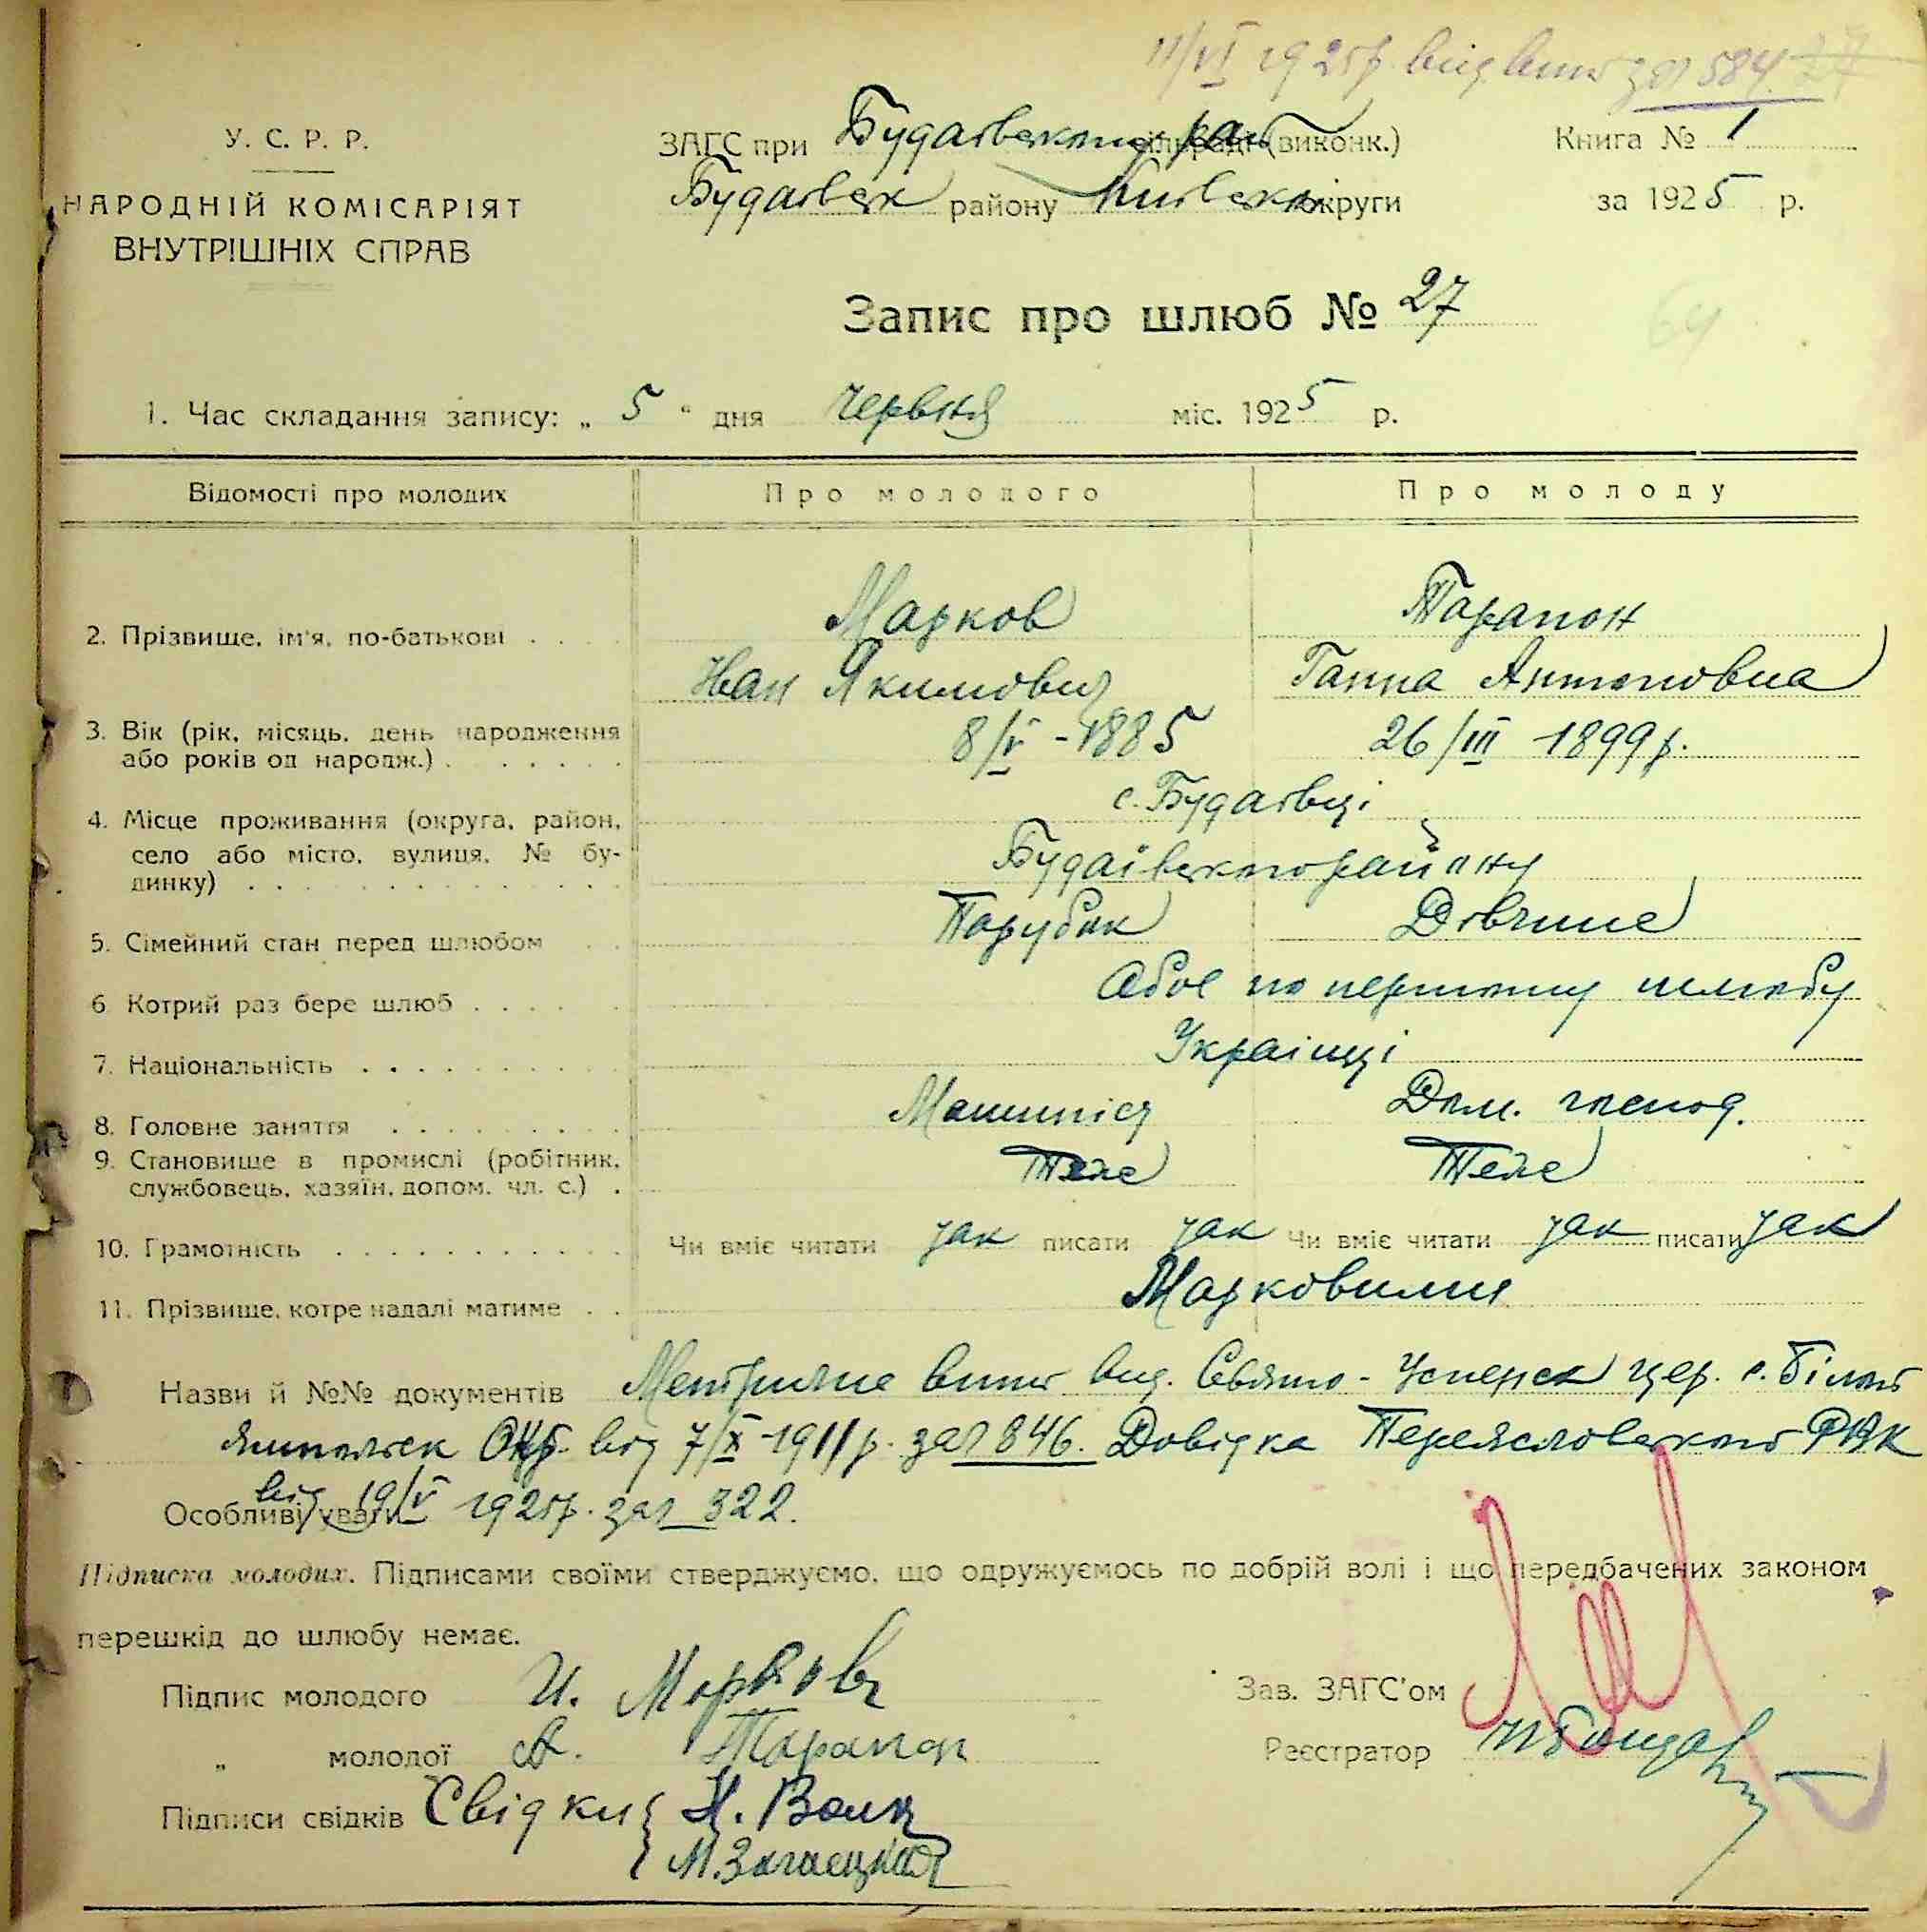 11/VI 1925р. вид. вип. за № 584. 27
У. С. Р. Р.
НАРОДНІЙ КОМІСАРІЯТ
ВНУТРІШНІХ СПРАВ
ЗАГС при Будаївському рай сільраді (виконк.)
Будаївськ району Київськ округи
Книга № 1
за 1925 р.
Запис про шлюб № 27
64
1. Час складання запису: „ 5 " дня червня міс. 1925 р.
Відомості про молодих Про молодого Про молоду
2. Прізвище, ім'я, по-батькові . . . . Марков Тарапон
Иван Якимович Ганна Антоновна
3. Вік (рік, місяць, день народження
або років од народж.) . . . . . . 8/V - 1885 26/III 1899 р.
с. Будаївці
4. Місце проживання (округа, район,
село або місто, вулиця, № бу-
динку) . . . . . . . . . . . . . . Будаївського району
5. Сімейний стан перед шлюбом . . Парубок Дівчина
6 Котрий раз бере шлюб . . . . . Обоє по першому шлюбу
7. Національність . . . . . . . . . . Українці
8. Головне заняття . . . . . . . . . Машиніст Дом. господ.
9. Становище в промислі (робітник,
службовець, хазяїн, допом. чл. с.) . Теж Теж
10. Грамотність . . . . . . . . . . . Чи вміє читати так писати так Чи вміє читати так писати так
11. Прізвище, котре надалі матиме . . Марковими
Назви й №№ документів Метричне вип. вид. Свято-Успенск цер. с. Білки
Окр. від 7/X-1911 р. за № 846. Довідка Переясловського РВК
Особливі уваги від 19/V 1925р. за № 322.
Підписка молодих. Підписами своїми стверджуємо, що одружуємось по добрій волі і що передбачених законом
перешкід до шлюбу немає.
Підпис молодого И. Марковъ
„ молодої А. Тарапон
Підписи свідків Свідки { Н. Волк
М. Загаецкая
Зав. ЗАГС'ом
Реєстратор